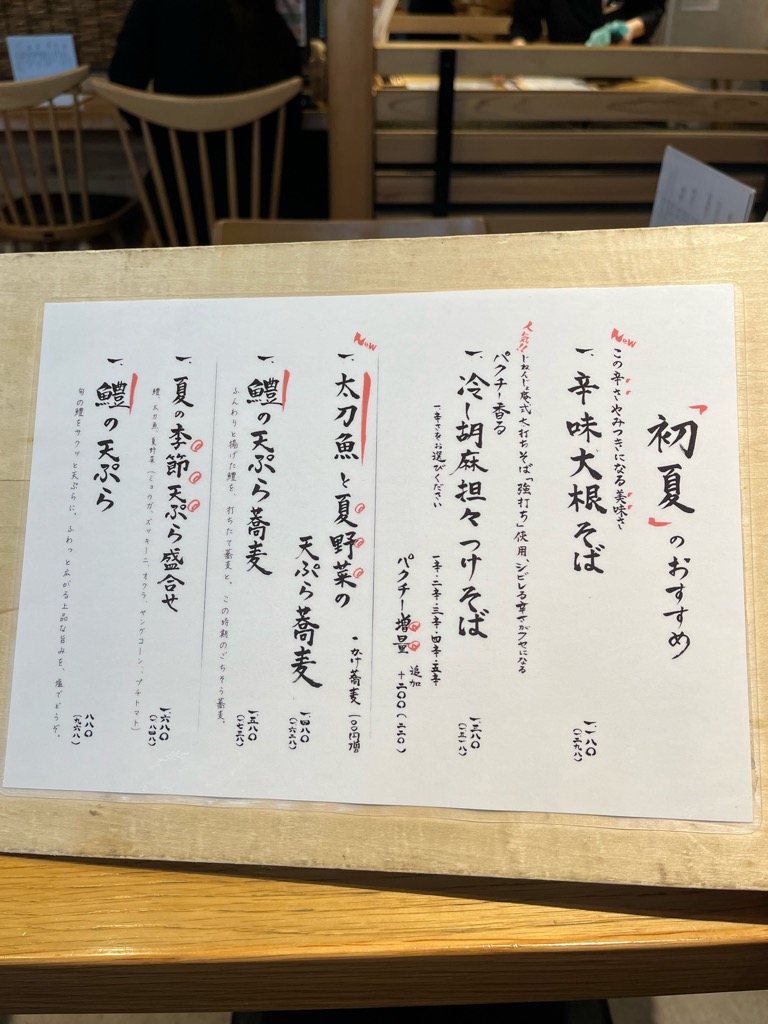 「初夏」のおすすめ
New
この辛さやみつきになる美味さ
一、辛味大根そば
一一八〇
(一二九八)
人気!!
じねんじょ庵式 太打ちそば「強打ち」使用 シビレる辛さがクセになる
パクチー香る
一、冷し胡麻担々つけそば
一三八〇
(一五一八)
一、辛さをお選びください
一辛・二辛・三辛・四辛・五辛
パクチー増量 追加
+二〇〇(二二〇)
New
一、太刀魚と夏野菜の
天ぷら蕎麦
・かけ蕎麦 一〇〇円増
一四八〇
(一六二八)
一、鱧の天ぷら蕎麦
一五八〇
(一七三八)
ふんわりと揚げた鱧を、打ちたて蕎麦と、この時期のごちそう蕎麦。
一、夏の季節天ぷら盛合せ
一六八〇
(一八四八)
鱧、太刀魚、夏野菜(ミョウガ、ズッキーニ、オクラ、ヤングコーン、プチトマト)
一、鱧の天ぷら
八八〇
(九六八)
旬の鱧をサクッと天ぷらに、ふわっと広がる上品な旨みを、塩でどうぞ。